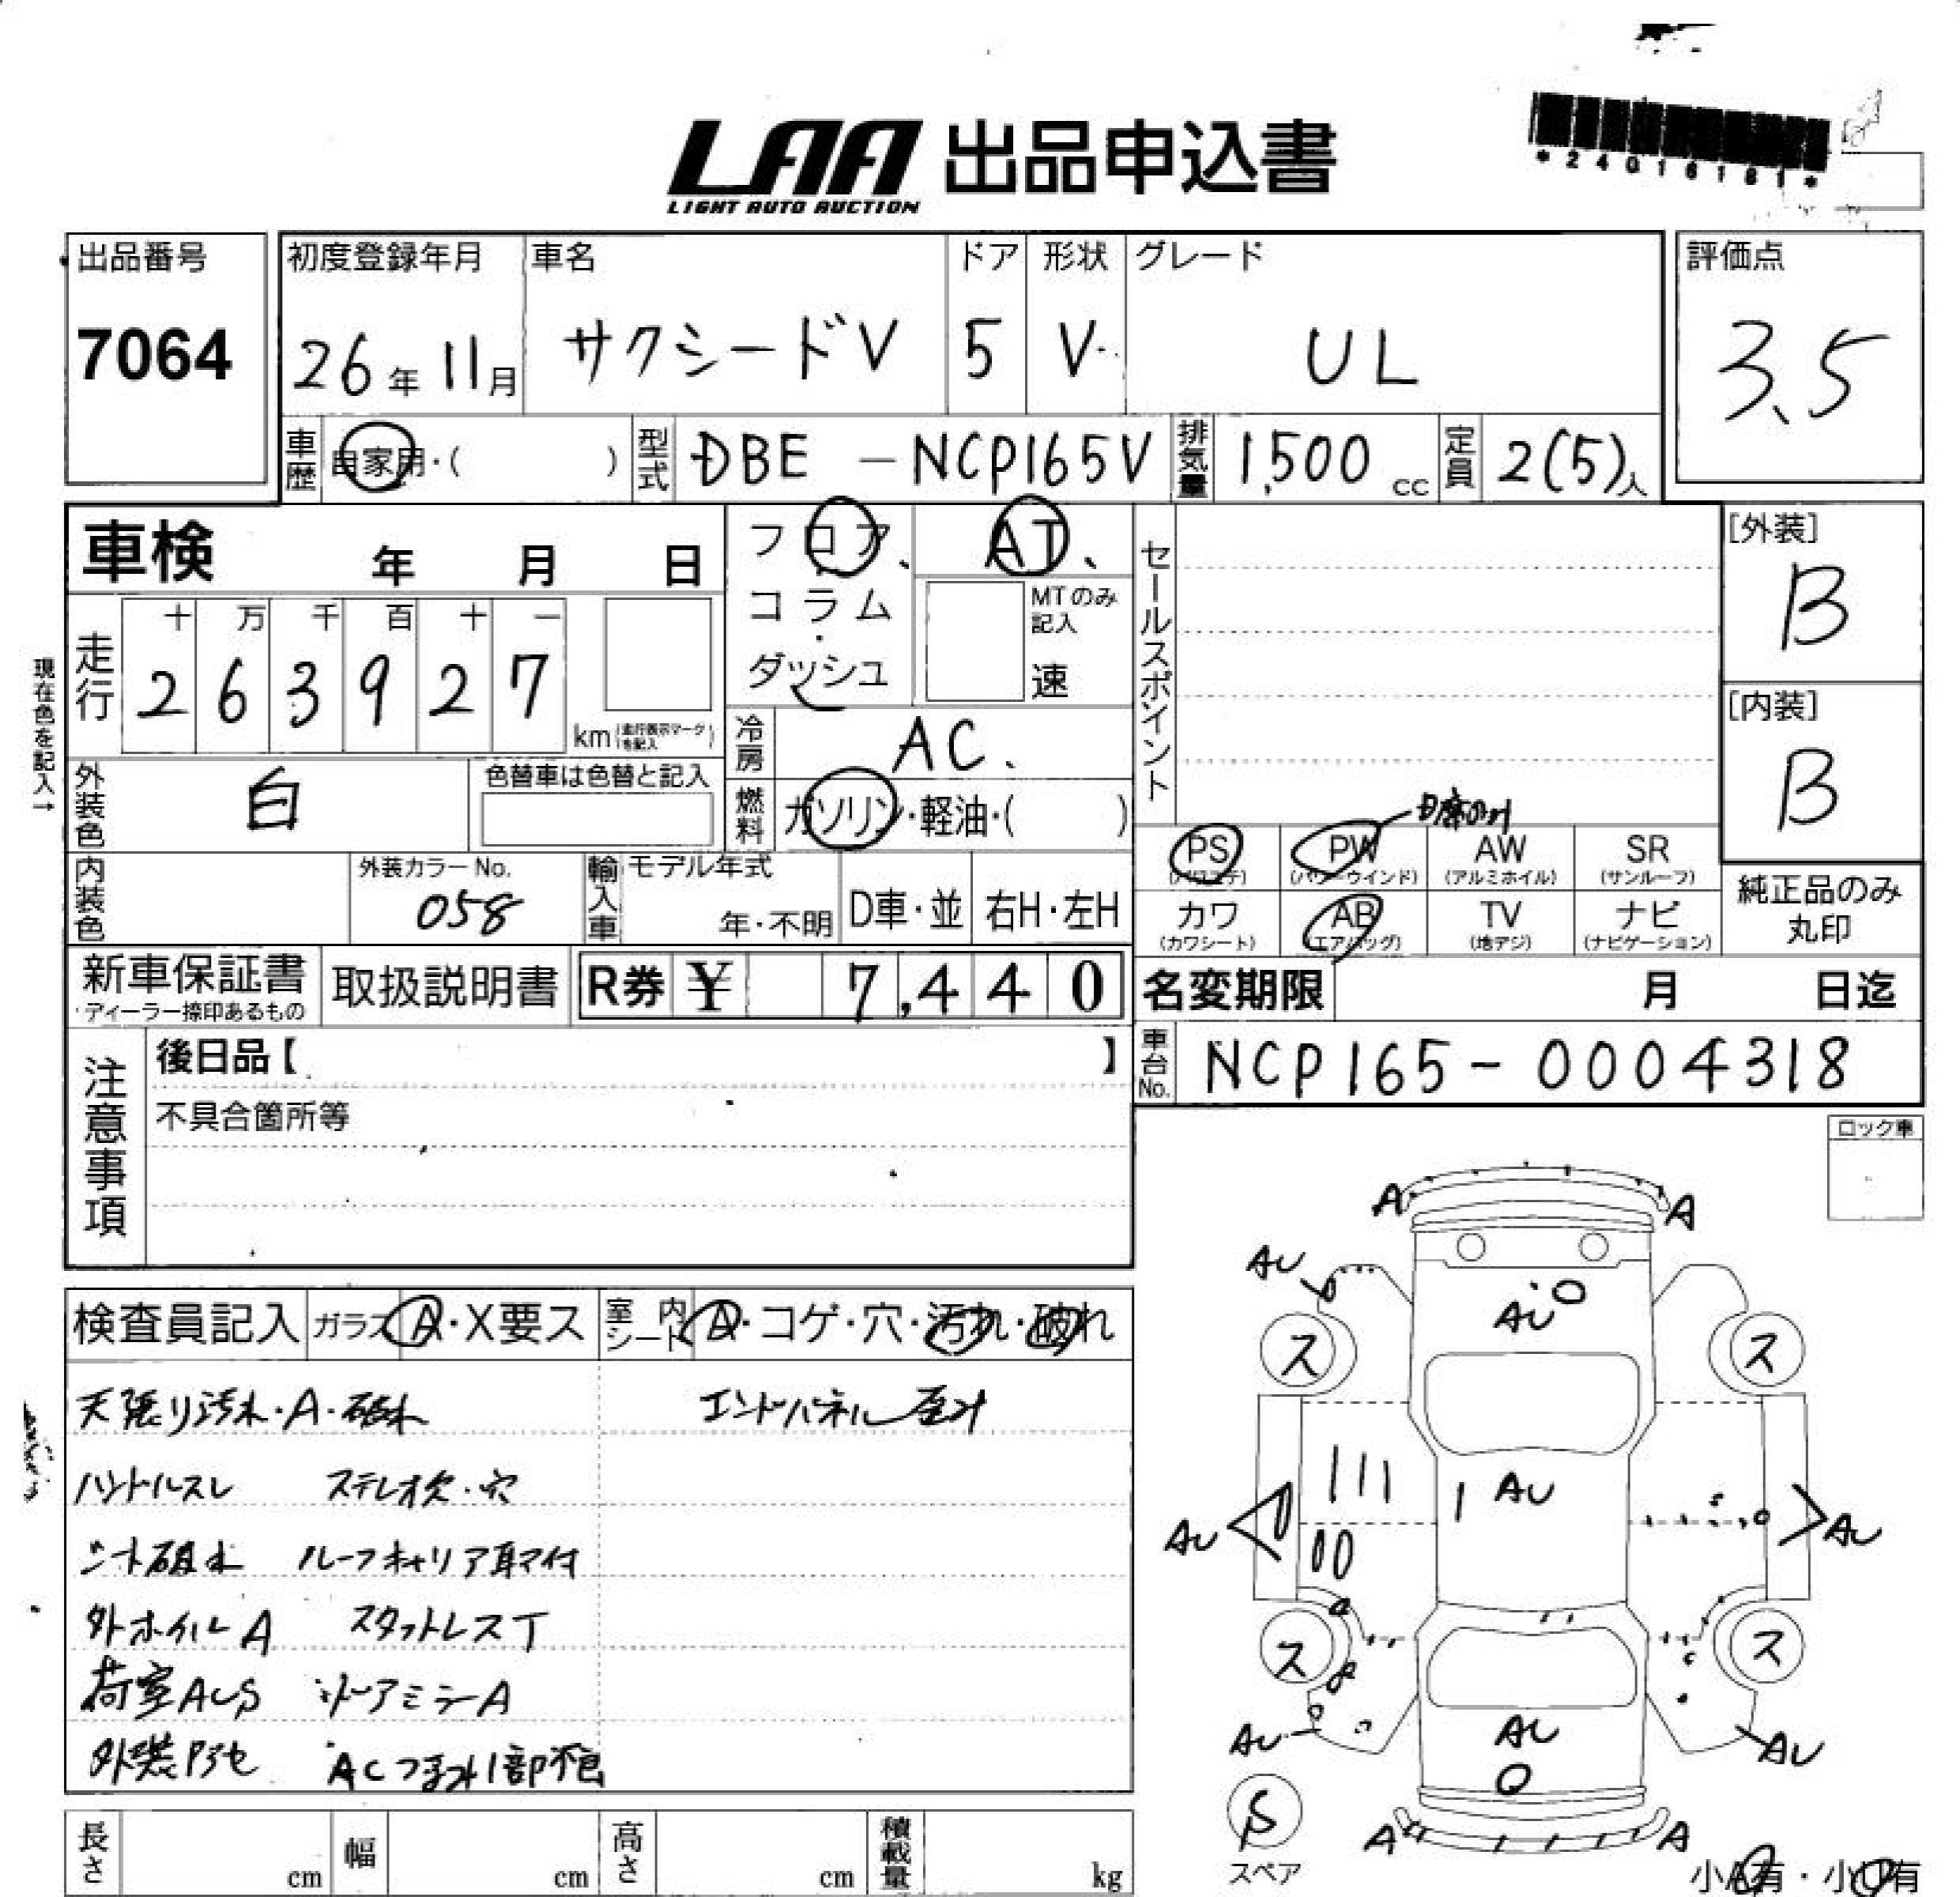 LAA 出品申込書
LIGHT AUTO AUCTION
*24016181*
出品番号
7064
初度登録年月
26年11月
車名
サクシードV
ドア
5
形状
V
グレード
UL
評価点
3.5
車歴 自家用・( )
型式 DBE-NCP165V
排気量 1,500cc
定員 2(5)人
車検 年 月 日
フロア、
コラム・
ダッシュ
AT、
MTのみ記入
速
セールスポイント
[外装]
B
[内装]
B
走行
十 万 千 百 十 一
2 6 3 9 2 7
km(走行表示マークを記入)
現在色を記入→
冷房 AC、
燃料 ガソリン・軽油・( )
外装色 白
色替車は色替と記入
D席のみ
PS
(パワステ)
PW
(パワーウインド)
AW
(アルミホイル)
SR
(サンルーフ)
カワ
(カワシート)
AB
(エアバッグ)
TV
(地デジ)
ナビ
(ナビゲーション)
純正品のみ
丸印
内装色
外装カラーNo.
058
輸入車
モデル年式
年・不明
D車・並
右H・左H
新車保証書
ディーラー捺印あるもの
取扱説明書
R券 ¥ 7,440
名変期限 月 日迄
車台No. NCP165-0004318
注意事項
後日品【 】
不具合箇所等
ロック車
検査員記入 ガラス A・X要ス
室内シート A・コゲ・穴・汚れ・破れ
天張り汚れ・A・破れ
エンドパネル歪み
ハンドルスレ ステレオ欠・穴
シート破れ ルーフキャリア取付
外ホイルA スタットレスT
荷室AUS ドアミラーA
ACつまみ1部不良
A A
AU
AU
ス ス
AU
AU AU
ス ス
AU AU AU
S
スペア
A A
小A有・小U有
長さ cm
幅 cm
高さ cm
積載量 kg